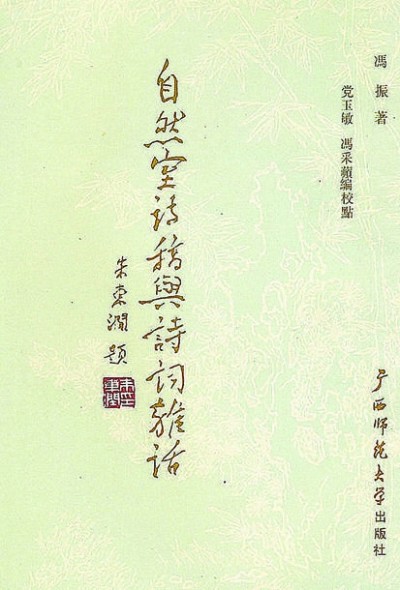 馮振著
党玉敏 馮采蘋編校點
自然室詩稿與詩詞雜話
朱東潤題
朱東潤
广西师范大学出版社